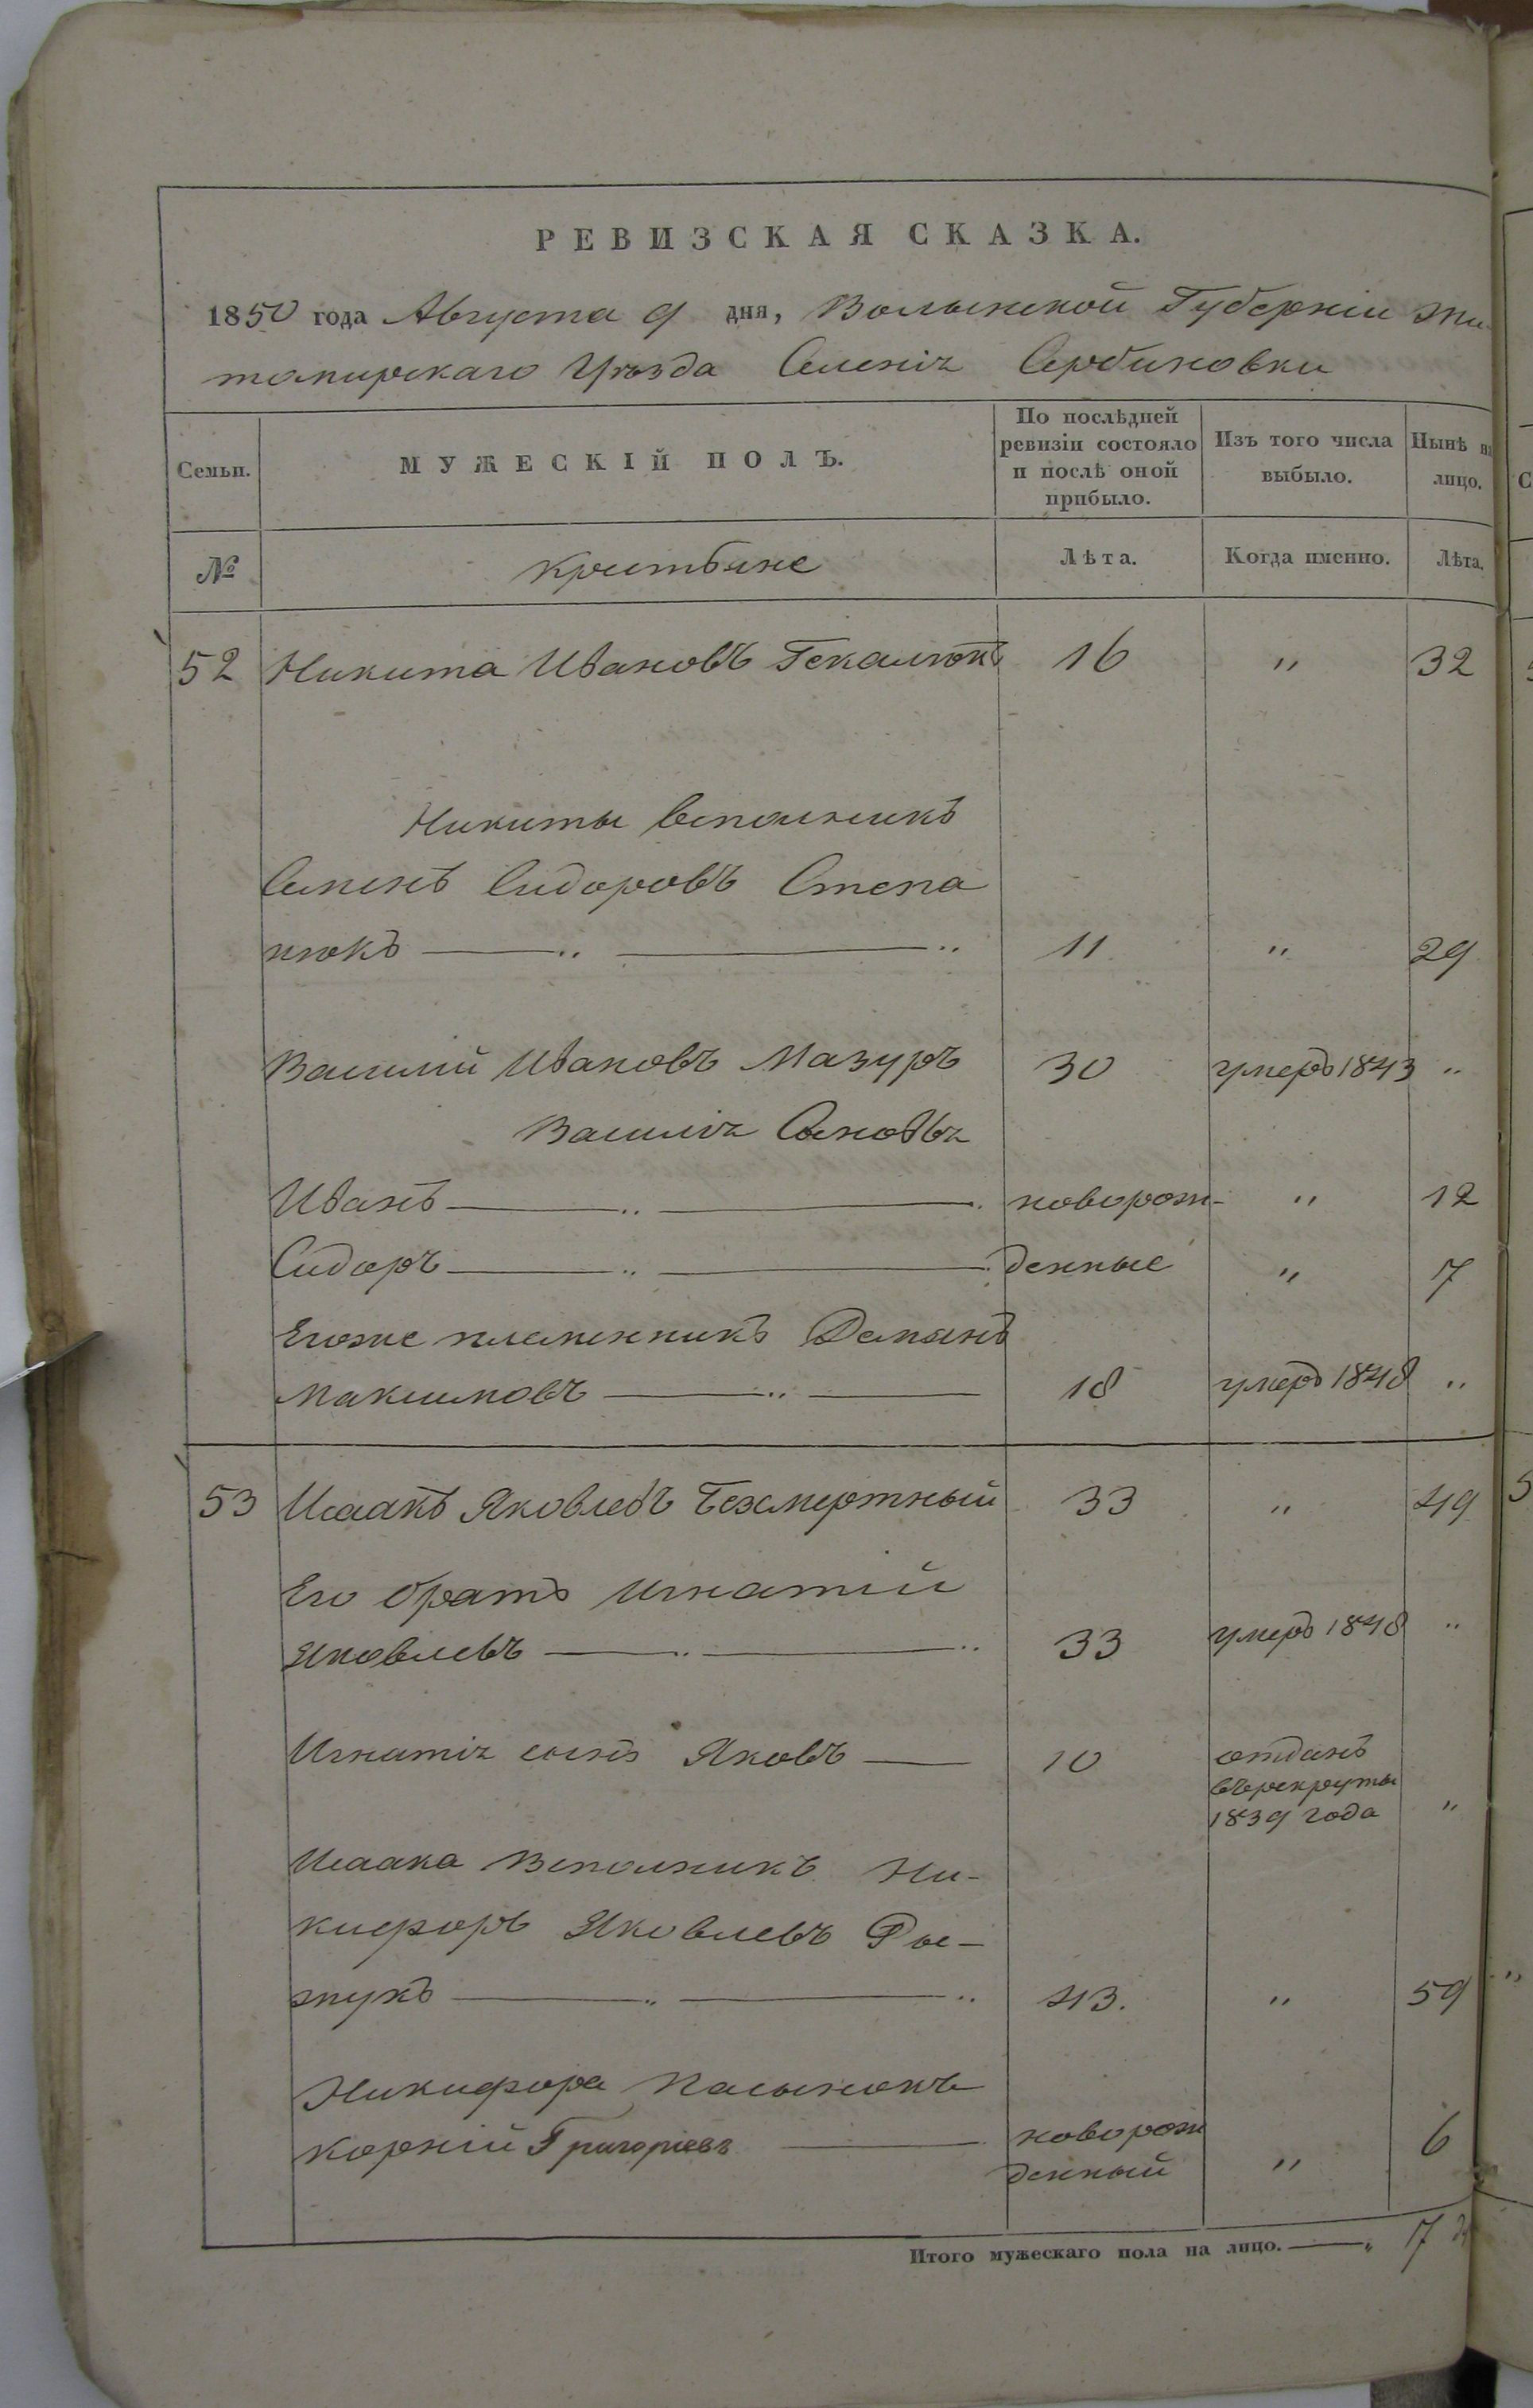 РЕВИЗСКАЯ СКАЗКА.
1850 года Августа 9 дня, Волынской Губерніи Жи
томирскаго Уѣзда Селенія Сербиновки
Семьи. МУЖЕСКІЙ ПОЛЪ. По послѣдней ревизіи состояло и послѣ оной прибыло. Изъ того числа выбыло. Нынѣ на лицо.
№ Лѣта. Когда именно. Лѣта.
52 Никита Ивановъ 16 " 32
Никиты вспольникъ
Семенъ Сидоровъ Степа
нюкъ 11 " 29
Василий Ивановъ Мазуръ 30 умеръ 1843 "
Василія Сыновья
Иванъ новорож- " 12
Сидоръ денные " 7
Егоже племенникъ Демянъ
Максимовъ 18 умеръ 1848 "
53 Исаакъ Яковлевъ Безсмертный 33 " 49
Его братъ Игнатій
Яковлевъ 33 умеръ 1848 "
Игнатія сынъ Яковъ 10 отданъ
въ рекруты
1839 года "
Исаака Вспольникъ Ни-
кифоръ Яковлевъ Ры-
жукъ 43. " 59
Никифора Пасынокъ
Корній Григоріевъ новорож
денный " 6
Итого мужескаго пола на лицо. " 7